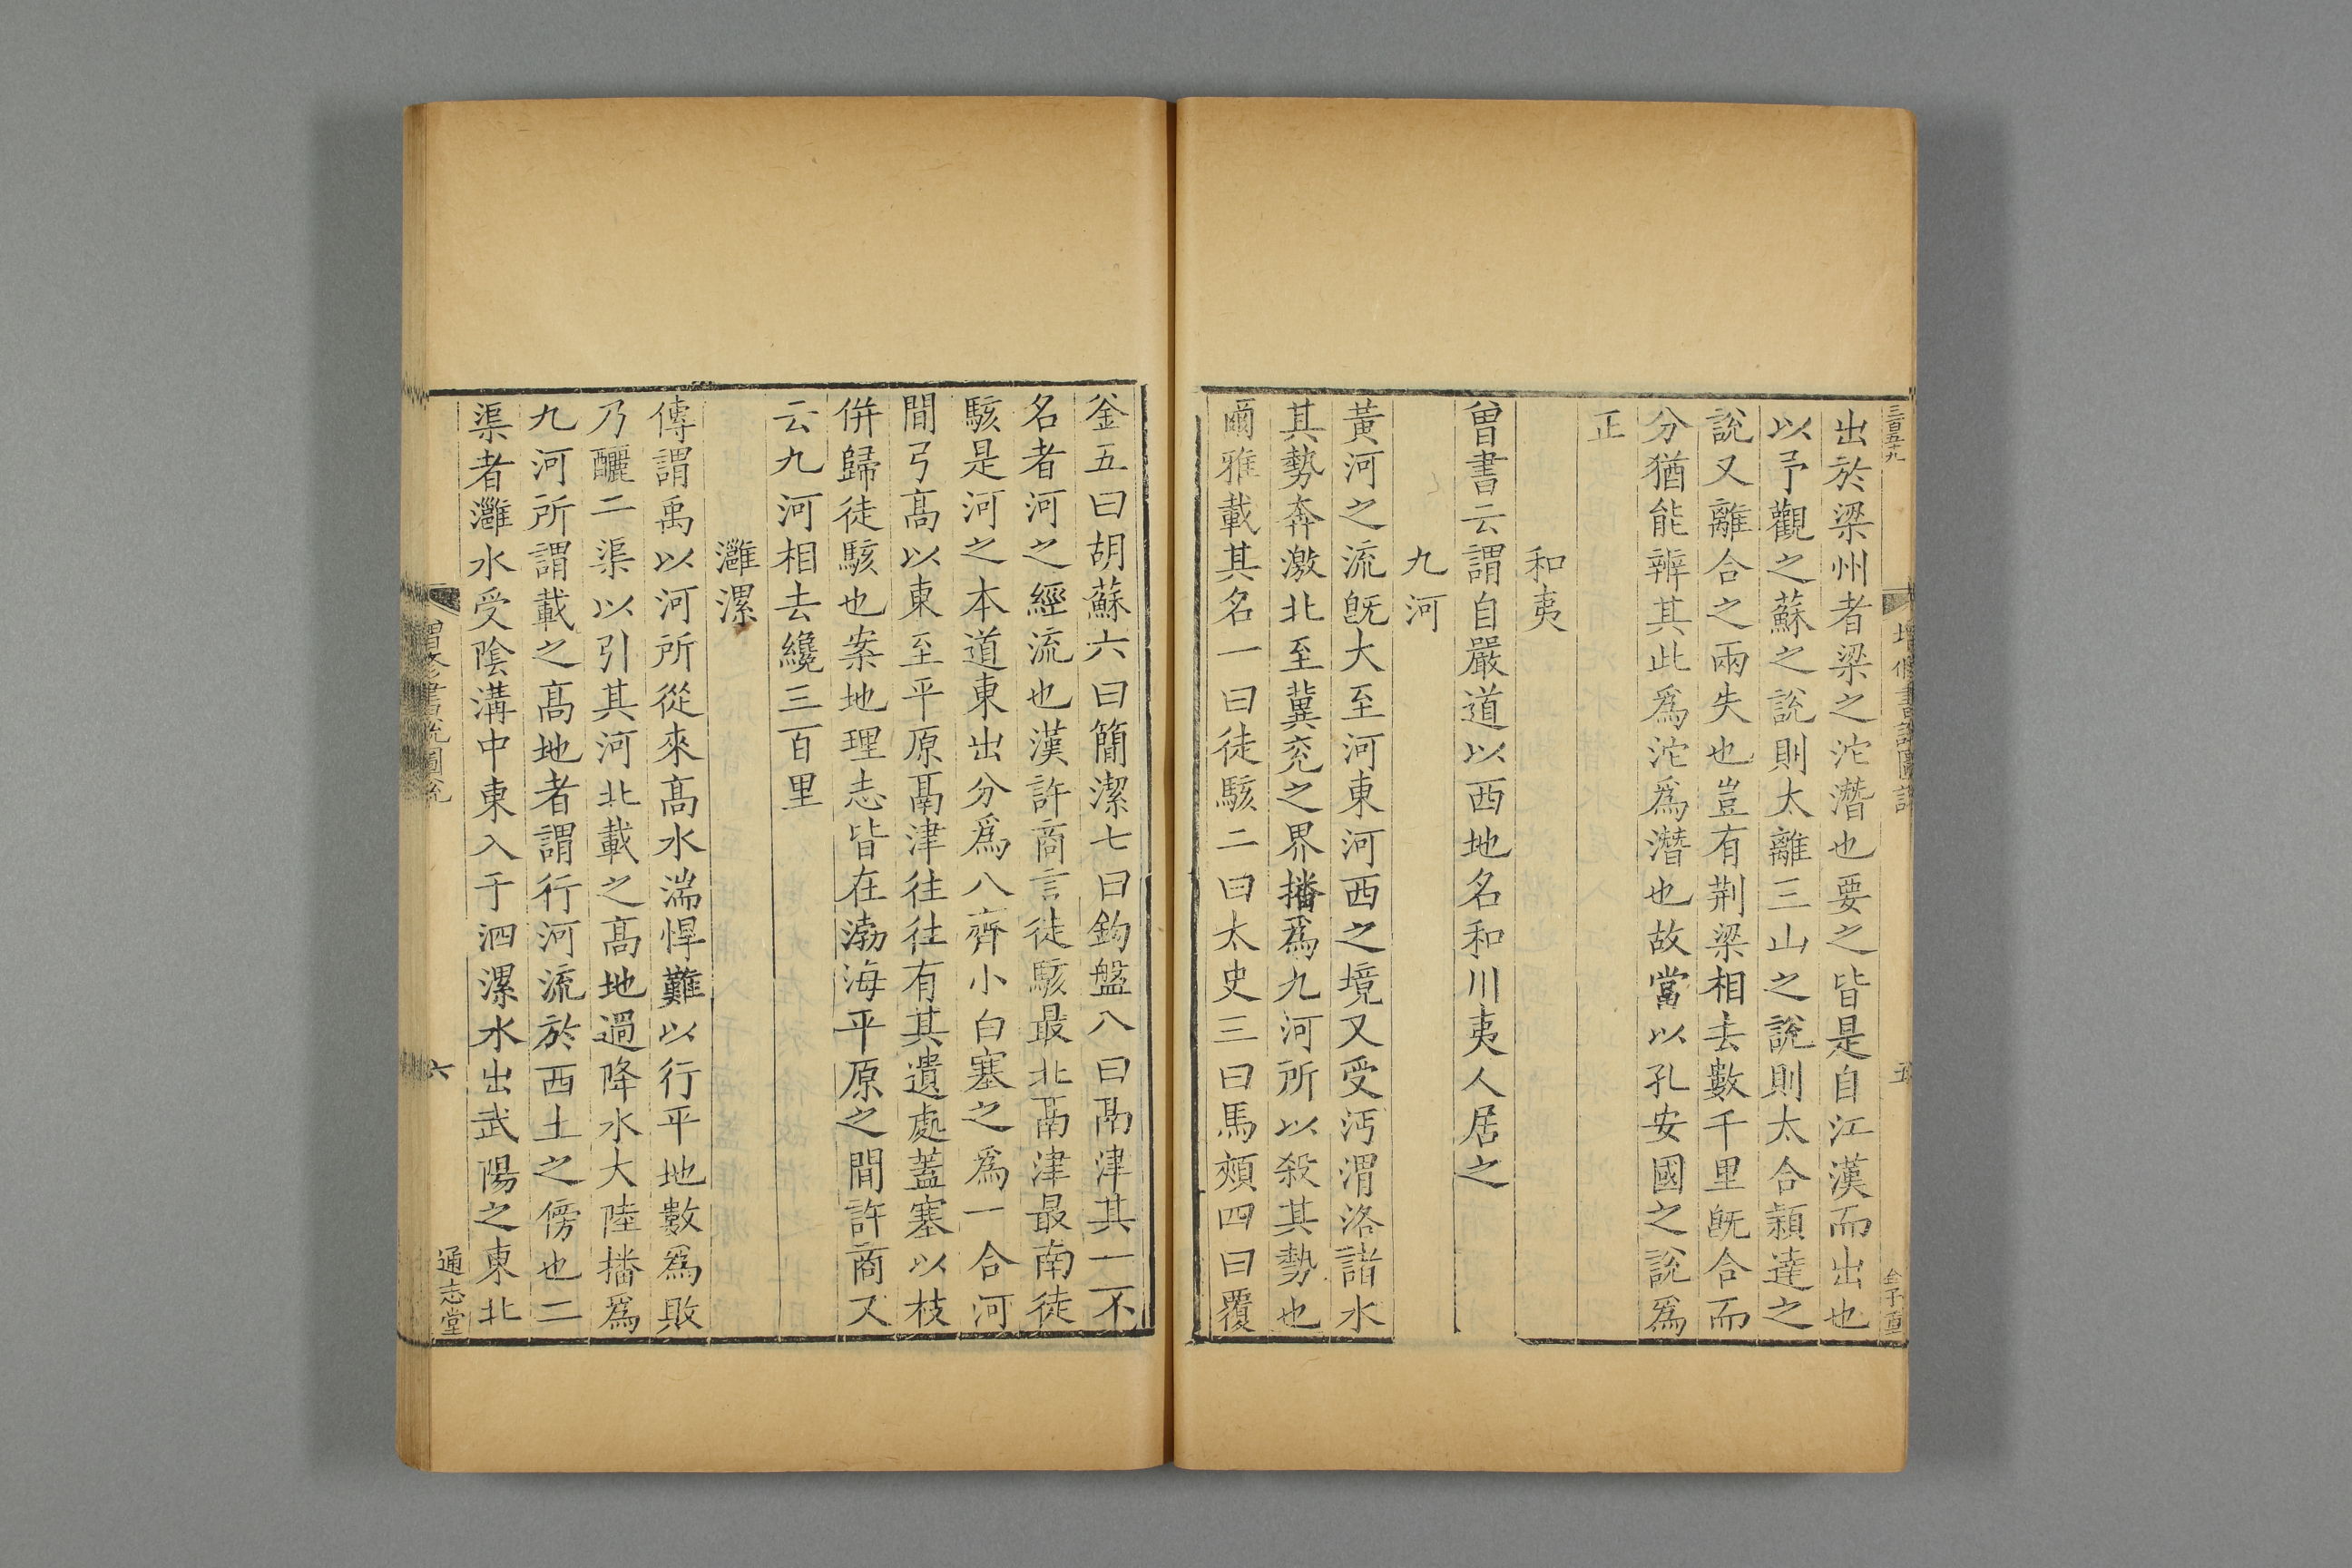 三百五十九
出於梁州者梁之沱潛也要之皆是自江漢而出也
以予觀之蘇之說則太離三山之說則太合潁達之
說又離合之兩失也豈有荆梁相去數千里旣合而
分猶能辨其此爲沱爲潛也故當以孔安國之說爲
正
和夷
曾書云謂自嚴道以西地名和川夷人居之
九河
黃河之流旣大至河東河西之境又受沔渭洛諸水
其勢奔激北至冀兖之界播爲九河所以殺其勢也
爾雅載其名一曰徒駭二曰太史三曰馬頰四曰覆
釜五曰胡蘇六曰簡潔七曰鉤盤八曰鬲津其一不
名者河之經流也漢許商言徒駭最北鬲津最南徒
駭是河之本道東出分爲八齊小白塞之爲一合河
間弓高以東至平原鬲津往往有其遺處蓋塞以枝
併歸徒駭也案地理志皆在渤海平原之間許商又
云九河相去纔三百里
灉漯
傳謂禹以河所從來髙水湍悍難以行平地數爲敗
乃釃二渠以引其河北載之髙地過降水大陸播爲
九河所謂載之髙地者謂行河流於西土之傍也二
渠者灉水受陰溝中東入于泗漯水出武陽之東北
增修書說圖說
六
通志堂